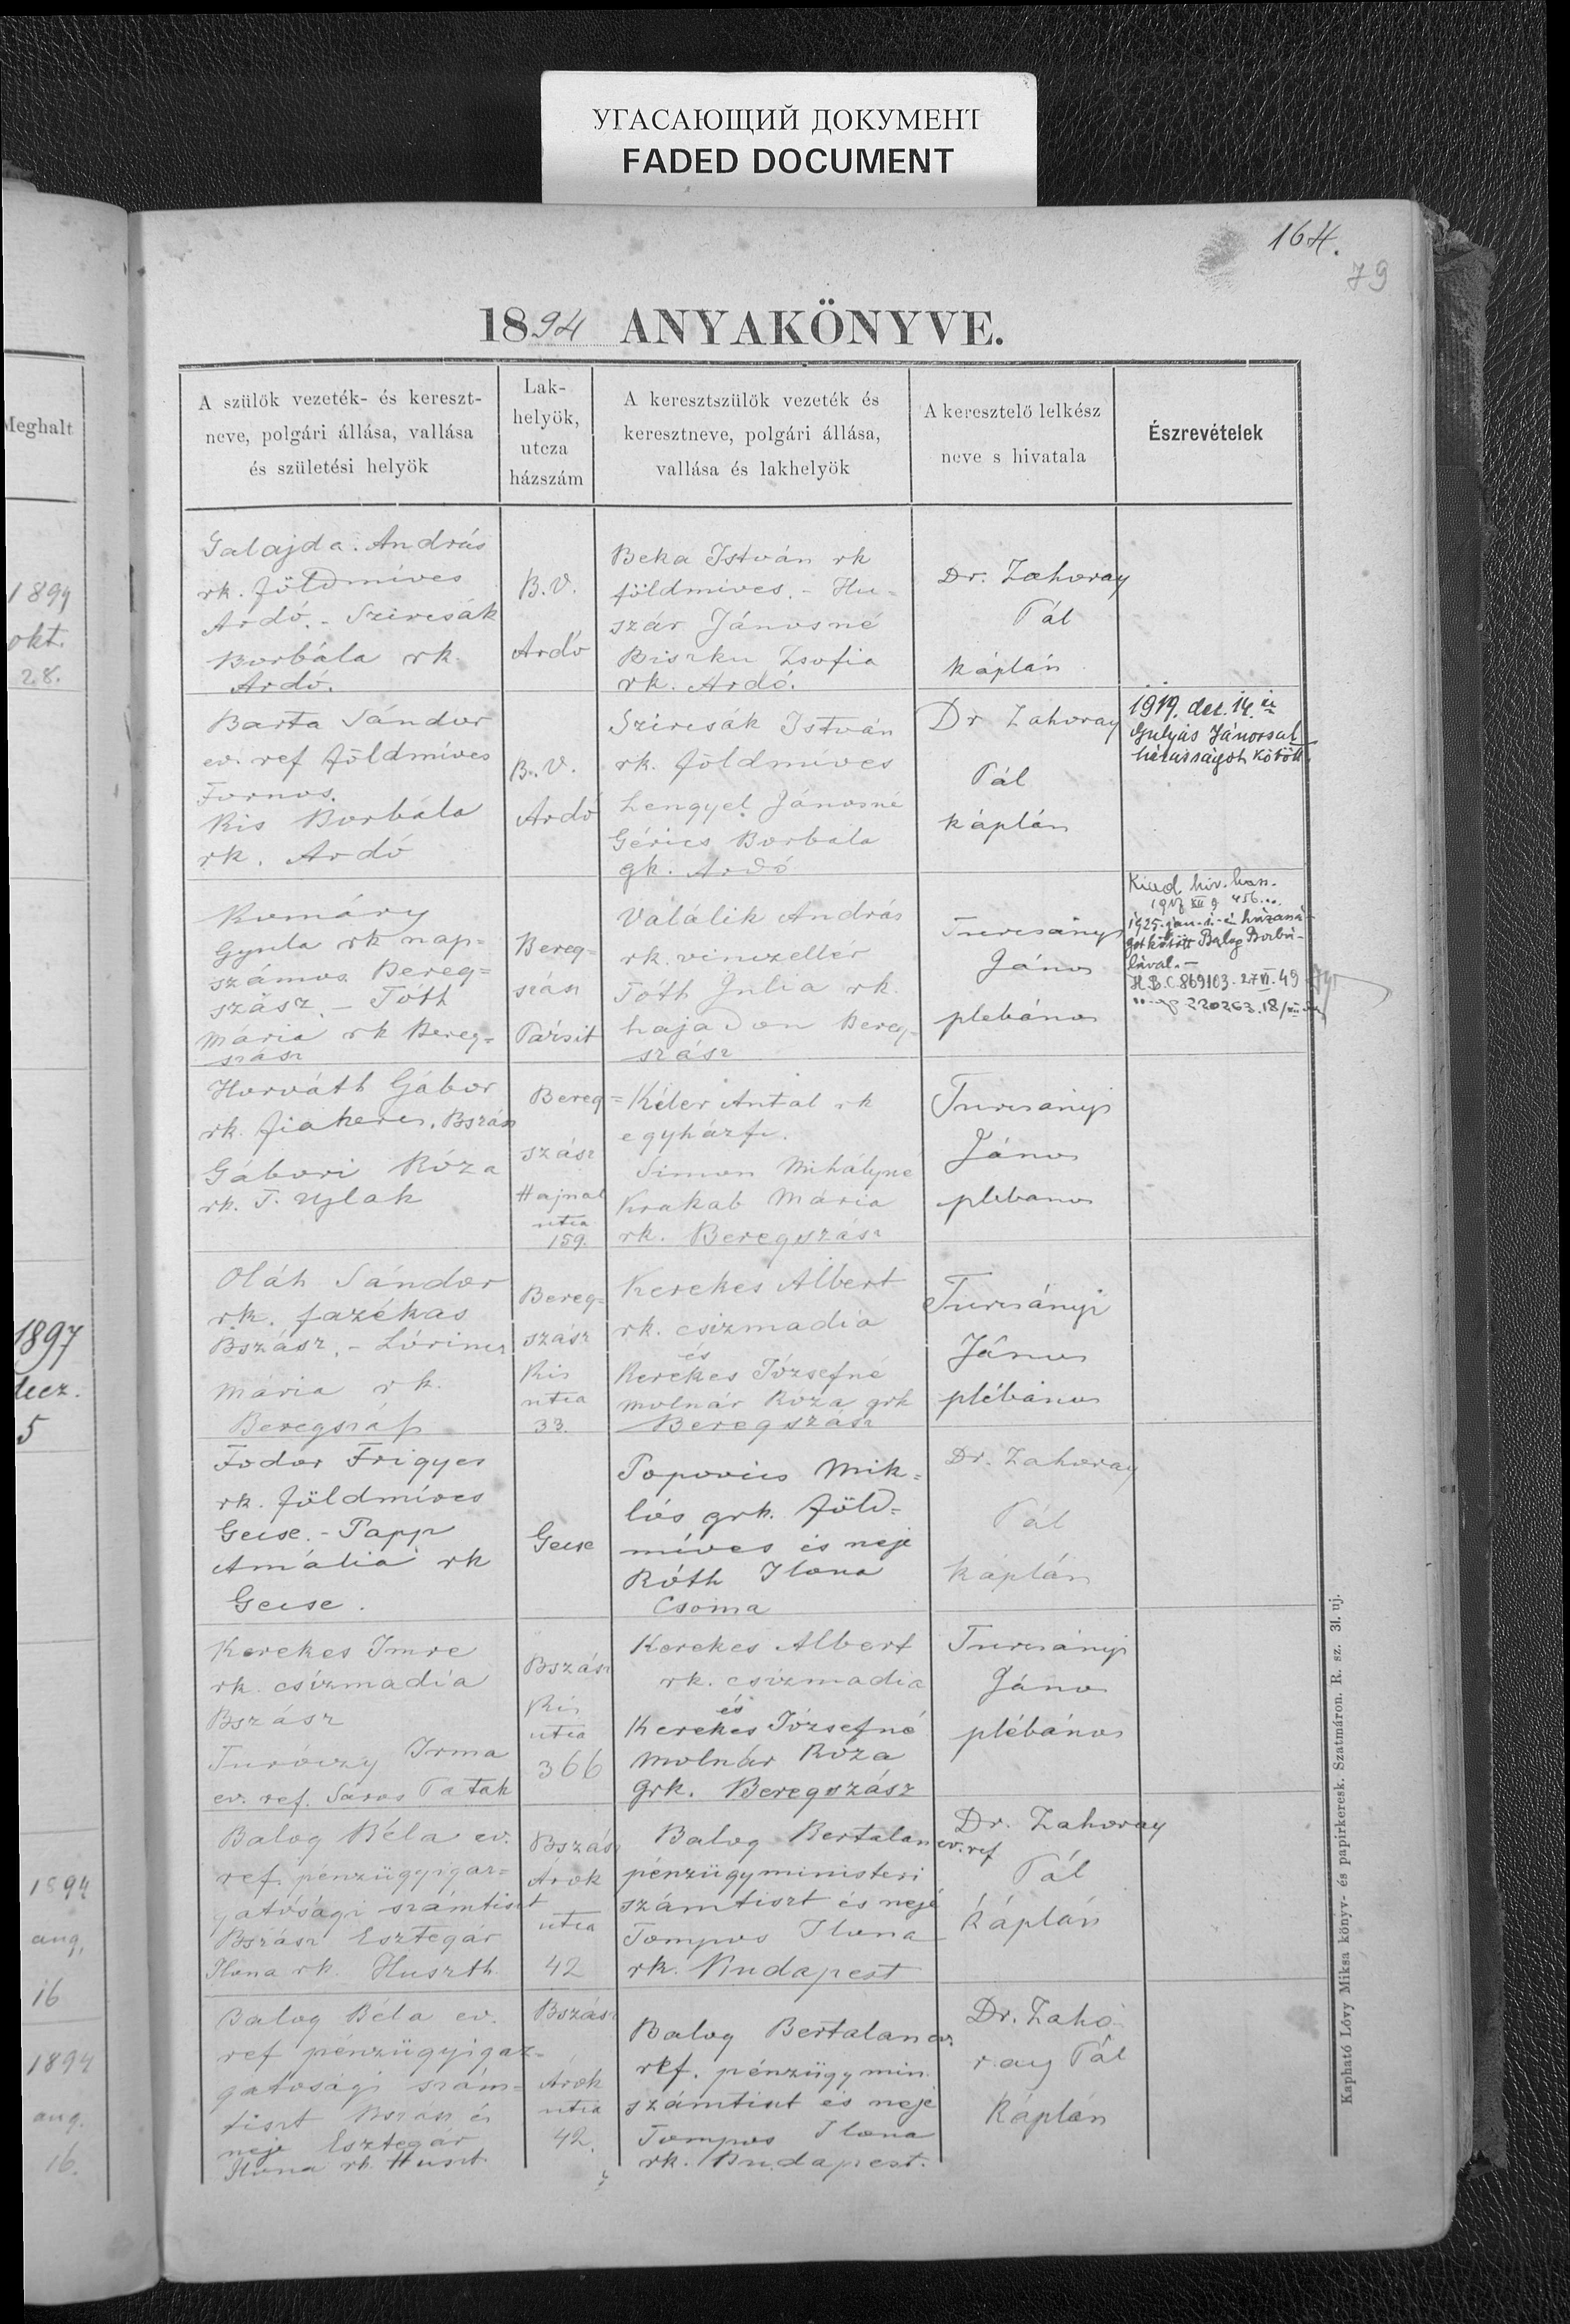 УГАСАЮЩИЙ ДОКУМЕНТ
FADED DOCUMENT
164.
79
1894 ANYAKÖNYVE.
Meghalt
1894
okt.
28.
1897
decz.
5
1894
aug.
16
1894
aug.
16.
A szülők vezeték- és kereszt-
neve, polgári állása, vallása
és születési helyök
Lak-
helyök,
utcza
házszám
A keresztszülők vezeték és
keresztneve, polgári állása,
vallása és lakhelyök
A keresztelő lelkész
neve s hivatala
Észrevételek
Galajda András
rk. földmíves
Ardó. - Szircsák
Borbála rk.
Ardó.
B.V.
Ardó
Beka István rk
földmíves. - Hu-
szár Jánosné
Biszku Zsofia
rk. Ardó.
Dr. Zahoray
Pál
káplán
Barta Sándor
ev. ref földmíves
Fornos.
Kis Borbála
rk. Ardó
B.V.
Ardó
Szircsák István
rk. földmíves
Lengyel Jánosné
Gérics Borbála
gk. Ardó
Dr Zahoray
Pál
káplán
1919. dec. 14. én
Gulyás Jánossal
házasságot kötött.
Komáry
Gyula rk nap-
számos Bereg-
szász. - Tóth
Mária rk Bereg-
szász
Bereg-
szász
Párisit
Valálik András
rk. vinczellér
Tóth Julia rk.
hajadon Bereg-
szász
Turcsányi
János
plebános
Kiad. hiv. han.
456
1925. jan.
got kötött Balog Borbá-
lával. -
H.B.C 869103. 27 VI. 49
220263. 18/
Horváth Gábor
rk. fiakeres. Bszász
Gábori Róza
rk. T. Ujlak
Bereg-
szász
Hajnal
utca
159.
Kéler Antal rk
egyházfi.
Simon Mihályné
Krakab Mária
rk. Beregszász
Turcsányi
János
plebanos
Oláh Sándor
rk. fazékas
Bszász. - Lőrincz
Mária rk.
Beregszász
Bereg-
szász
Kis
utca
33.
Kerekes Albert
rk. csizmadia
és
Kerekes Józsefné
Molnár Róza grk
Beregszász
Turcsányi
János
plébános
Fodor Frigyes
rk. földmíves
Gecse. - Papp
Amália rk
Gecse.
Gecse
Popovics Mik-
lós grk. föld-
míves és neje
Róth Ilona
Csoma
Dr. Zahoray
Pál
káplán
Kerekes Imre
rk. csizmadia
Bszász
Turoczy Irma
ev. ref. Saros Patak
Bszász
Kis
utca
366
Kerekes Albert
rk. csizmadia
és
Kerekes Józsefné
Molnár Róza
grk. Beregszász
Turcsányi
Jáno
plébános
Balog Béla ev.
ref. pénzügyigaz-
gatósági számtiszt
Bszász Esztegár
Ilona rk. Huszth
Bszász
Árok
utca
42
Balog Bertalan ev. ref
pénzügyministeri
számtiszt és neje
Tompos Ilona
rk. Budapest
Dr. Zahoray
Pál
káplán
Balog Béla ev.
ref pénzügyigaz-
gatósági szám-
tiszt Bszász és
neje Esztegár
Ilona rk. Huszt
Bszász
Árok
utca
42.
Balog Bertalan ev.
ref. pénzügymin.
számtiszt és neje
Tompos Ilona
rk. Budapest.
Dr. Zaho-
ray Pál
Káplán
Kapható Lővy Miksa könyv- és papirkeresk. Szatmáron. R. sz. 31. uj.